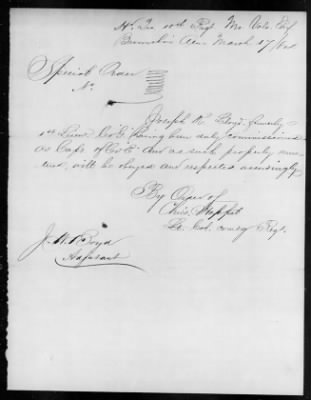 Hd Qrs 10th Regt Mo Vols Inf
March 17/
Special Order
No
Joseph R. Boyd formerly
1st Lieut Co E having been duly commissioned
as Capt of Co E and as such properly mus-
tered, will be obeyed and respected accordingly
By Order of
Lt. Col. comdg Regt.
J. W. Boyd
Adjutant